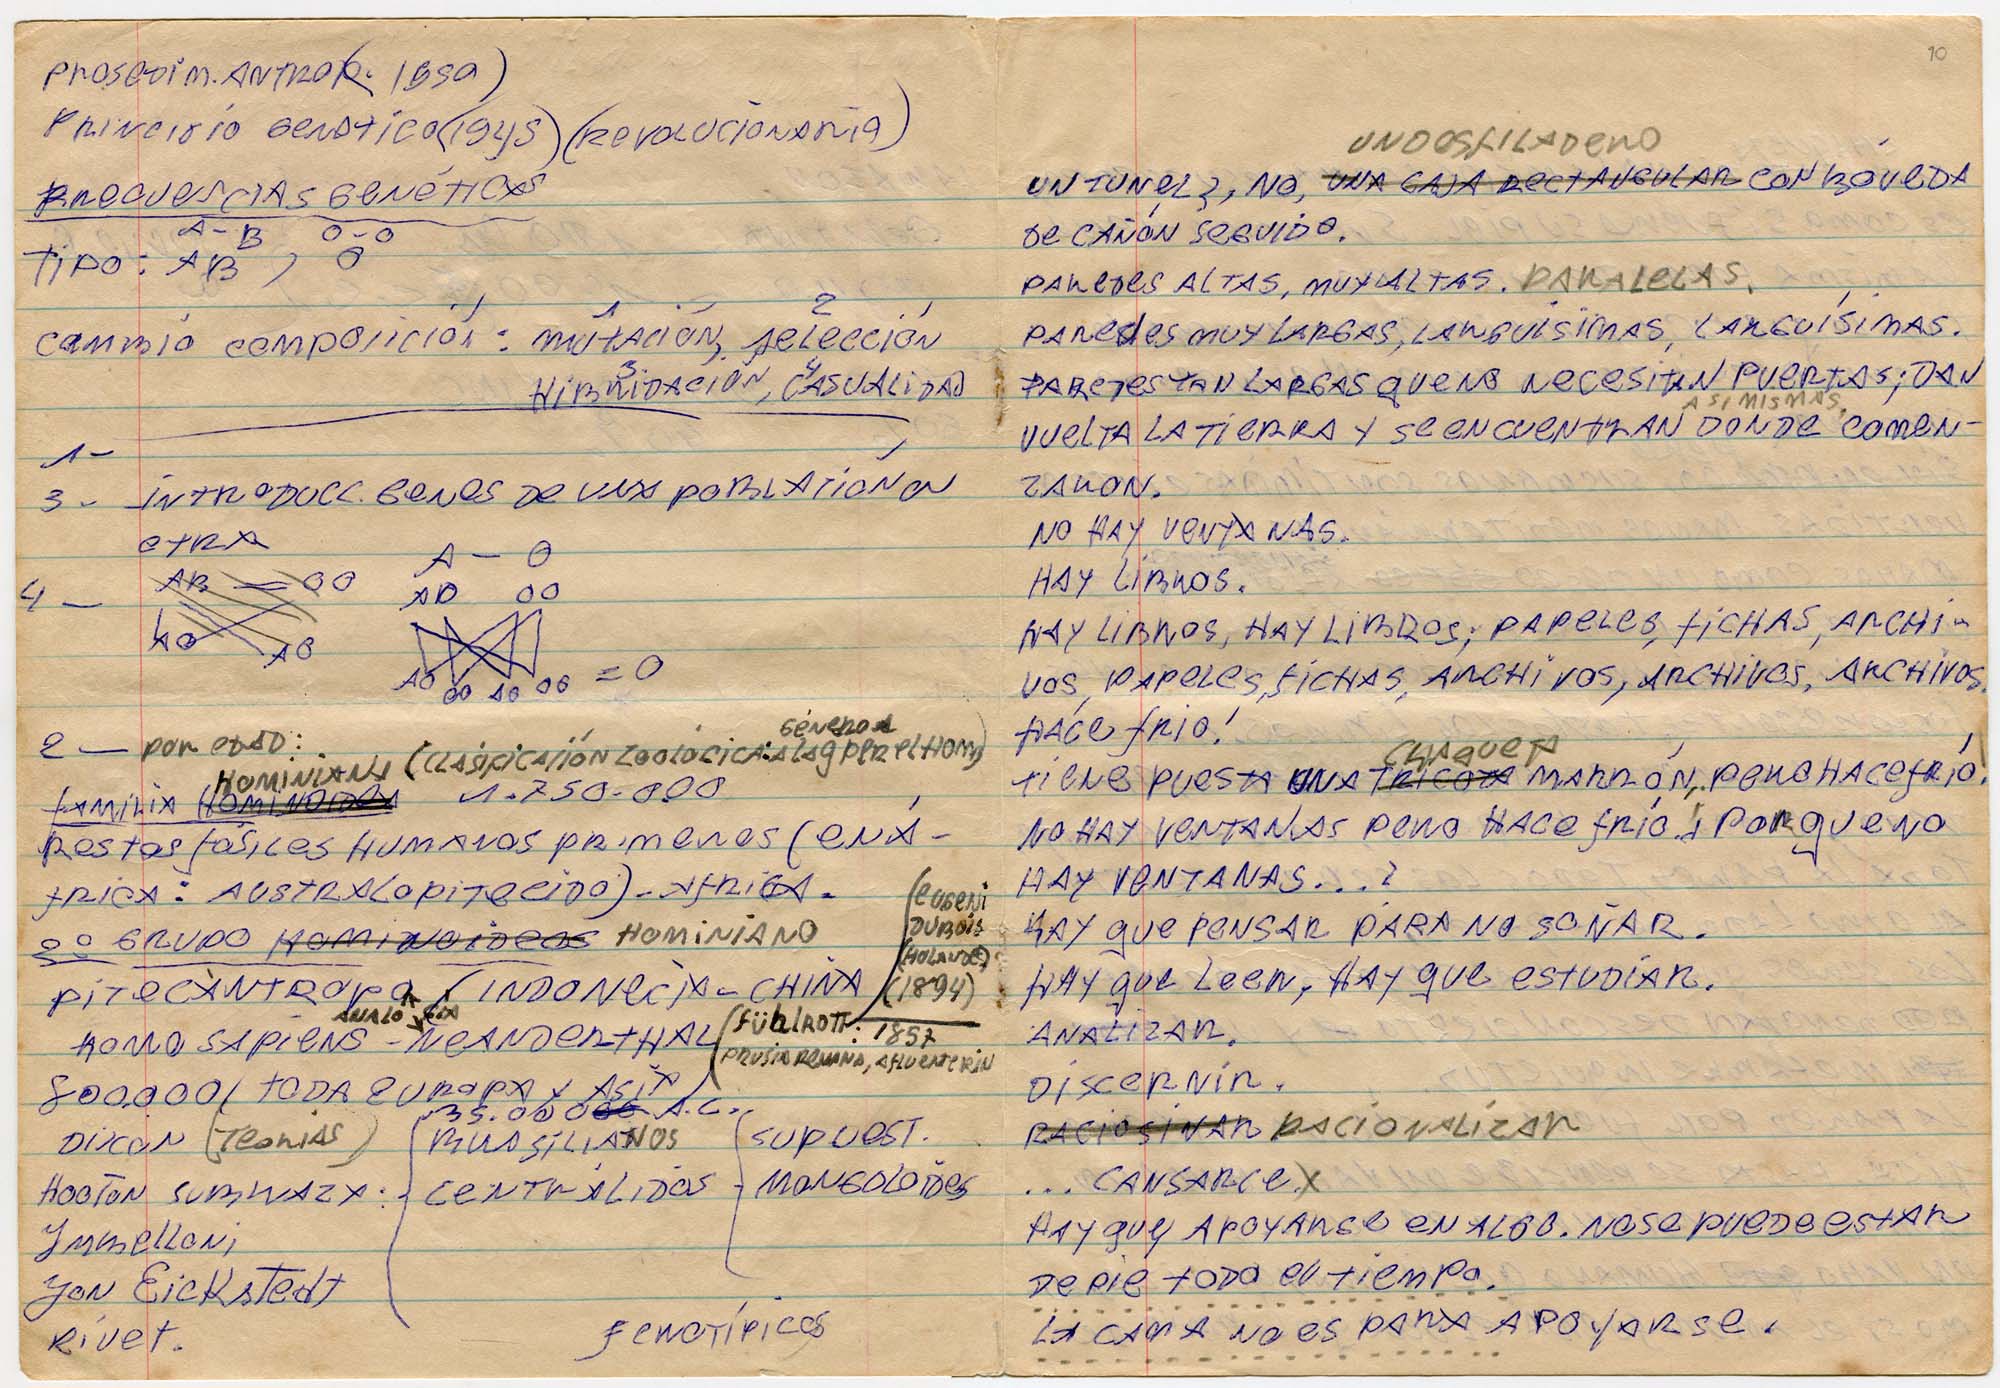 PROSEDIM. ANTROP. 1950)
PRINCIPIO GENETICO (1945) (REVOLUCIONARIA)
FRECUENCIAS GENÉTICAS
A-B O-O
TIPO: AB, O
1 2
CAMBIO COMPOSICIÓN: MUTACIÓN, SELECCIÓN
3 4
HIBRIDACIÓN, CASUALIDAD
1-
3- INTRODUCC. GENES DE UNA POBLACIÓN A
OTRA
A - O
4 - AB = OO AO OO
AO AO
AO OO AO OO = O
2 - POR EDAD:
GÉNERO
HOMINIANA (CLASIFICACIÓN ZOOLÓGICA: A LA Q PER EL HOM)
FAMILIA HOMINOIDEA 1.750.000
RESTOS FÓSILES HUMANOS PRIMEROS (EN Á-
FRICA: AUSTRALOPITECIDO) - AFRICA.
2º GRUPO HOMINOIDEOS HOMINIANO
(EUGENI
DUBOIS
(HOLANDÉS)
(1894)
PITECÁNTROPO (INDONECIA - CHINA
ANALOGIA
HOMO SAPIENS - NEANDERTHAL (FÜHLROTT: 1857
PRUSIA RENANA, AFLUENTE RIN
800.000 (TODA EUROPA Y ASIA
35.000 A.C.
DIXON (TEORIAS) BRASILIANOS SUPUEST.
HOOTON SUBRAZA: CENTRÁLIDOS - MONGOLOIDES
IMBELLONI
VON EICKSTEDT
RIVET.
FENOTÍPICOS
10
UN DESFILADERO
UN TUNEL?, NO, UNA CAJA RECTANGULAR CON BÓVEDA
DE CAÑÓN SEGUIDO.
PAREDES ALTAS, MUY ALTAS. PARALELAS.
PAREDES MUY LARGAS, LARGUÍSIMAS, LARGUÍSIMAS.
PAREDES TAN LARGAS QUE NO NECESITAN PUERTAS; DAN
A SI MISMAS,
VUELTA LA TIERRA Y SE ENCUENTRAN DONDE COMEN-
ZARON.
NO HAY VENTANAS.
HAY LIBROS.
HAY LIBROS, HAY LIBROS; PAPELES, FICHAS, ARCHI-
VOS, PAPELES, FICHAS, ARCHIVOS, ARCHIVOS, ARCHIVOS.
HACE FRIO!
CHAQUETA
TIENE PUESTA UNA TRICOTA MARRÓN, PERO HACE FRÍO!
NO HAY VENTANAS PERO HACE FRÍO! PORQUE NO
HAY VENTANAS...?
HAY QUE PENSAR PARA NO SOÑAR.
HAY QUE LEER, HAY QUE ESTUDIAR.
ANALIZAR.
DISCERNIR.
RACIOSINAR RACIONALIZAR
... CANSARCE.
HAY QUE APOYARSE EN ALGO. NO SE PUEDE ESTAR
DE PIE TODO EL TIEMPO.
LA CAMA NO ES PARA APOYARSE.